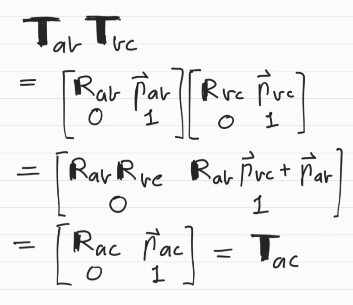 T_ab T_bc
= [R_ab p⃗_ab; 0 1] [R_bc p⃗_bc; 0 1]
= [R_ab R_bc R_ab p⃗_bc + p⃗_ab; 0 1]
= [R_ac p⃗_ac; 0 1] = T_ac